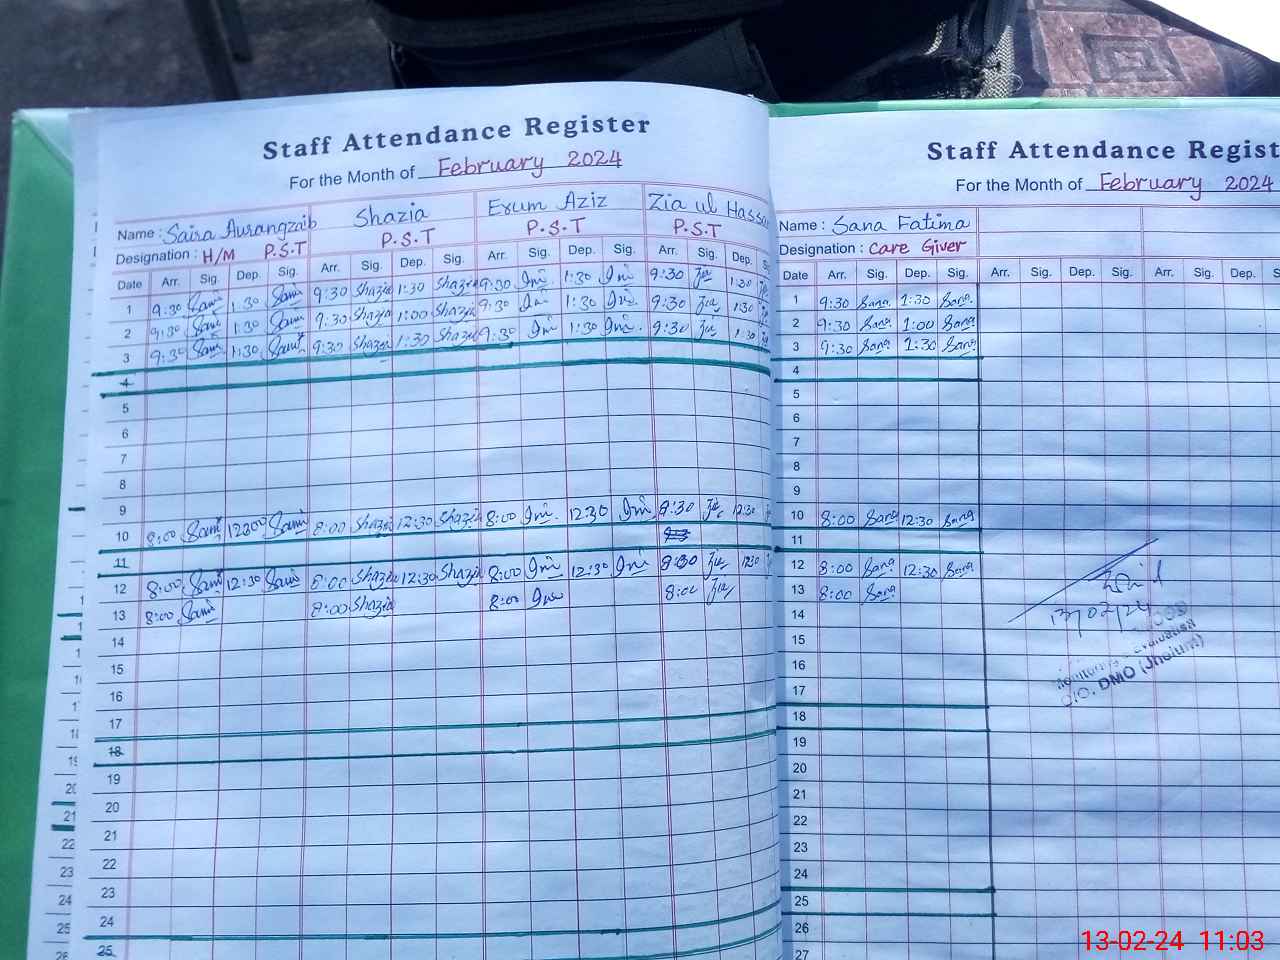 Staff Attendance Register
For the Month of February 2024
Name : Saira Aurangzaib Shazia Erum Aziz Zia ul Hassan
Designation : H/M P.S.T P.S.T P.S.T P.S.T
Date Arr. Sig. Dep. Sig. Arr. Sig. Dep. Sig. Arr. Sig. Dep. Sig. Arr. Sig. Dep.
1 9:30 Sami 1:30 Sami 9:30 Shazia 1:30 Shazia 9:30 1:30 9:30 Zia 1:30
2 9:30 Sami 1:30 Sami 9:30 Shazia 1:00 Shazia 9:30 1:30 9:30 Zia 1:30
3 9:30 Sami 1:30 Sami 9:30 Shazia 1:30 Shazia 9:30 1:30 9:30 Zia 1:30
4
5
6
7
8
9
10 8:00 Sami 12:00 Sami 8:00 Shazia 12:30 Shazia 8:00 12:30 8:30 Zia 12:30
11
12 8:00 Sami 12:30 Sami 8:00 Shazia 12:30 Shazia 8:00 12:30 8:30 Zia 12:30
13 8:00 Sami 8:00 Shazia 8:00 8:00 Zia
14
15
16
17
18
19
20
21
22
23
24
25
Staff Attendance Regist
For the Month of February 2024
Name : Sana Fatima
Designation : Care Giver
Date Arr. Sig. Dep. Sig. Arr. Sig. Dep. Sig. Arr. Sig. Dep.
1 9:30 Sana 1:30 Sana
2 9:30 Sana 1:00 Sana
3 9:30 Sana 1:30 Sana
4
5
6
7
8
9
10 8:00 Sana 12:30 Sana
11
12 8:00 Sana 12:30 Sana
13 8:00 Sana
14
15
16
17
18
19
20
21
22
23
24
25
26
27
13/02/24
Evaluation
O/O. DMO (Jhelum)
13-02-24 11:03